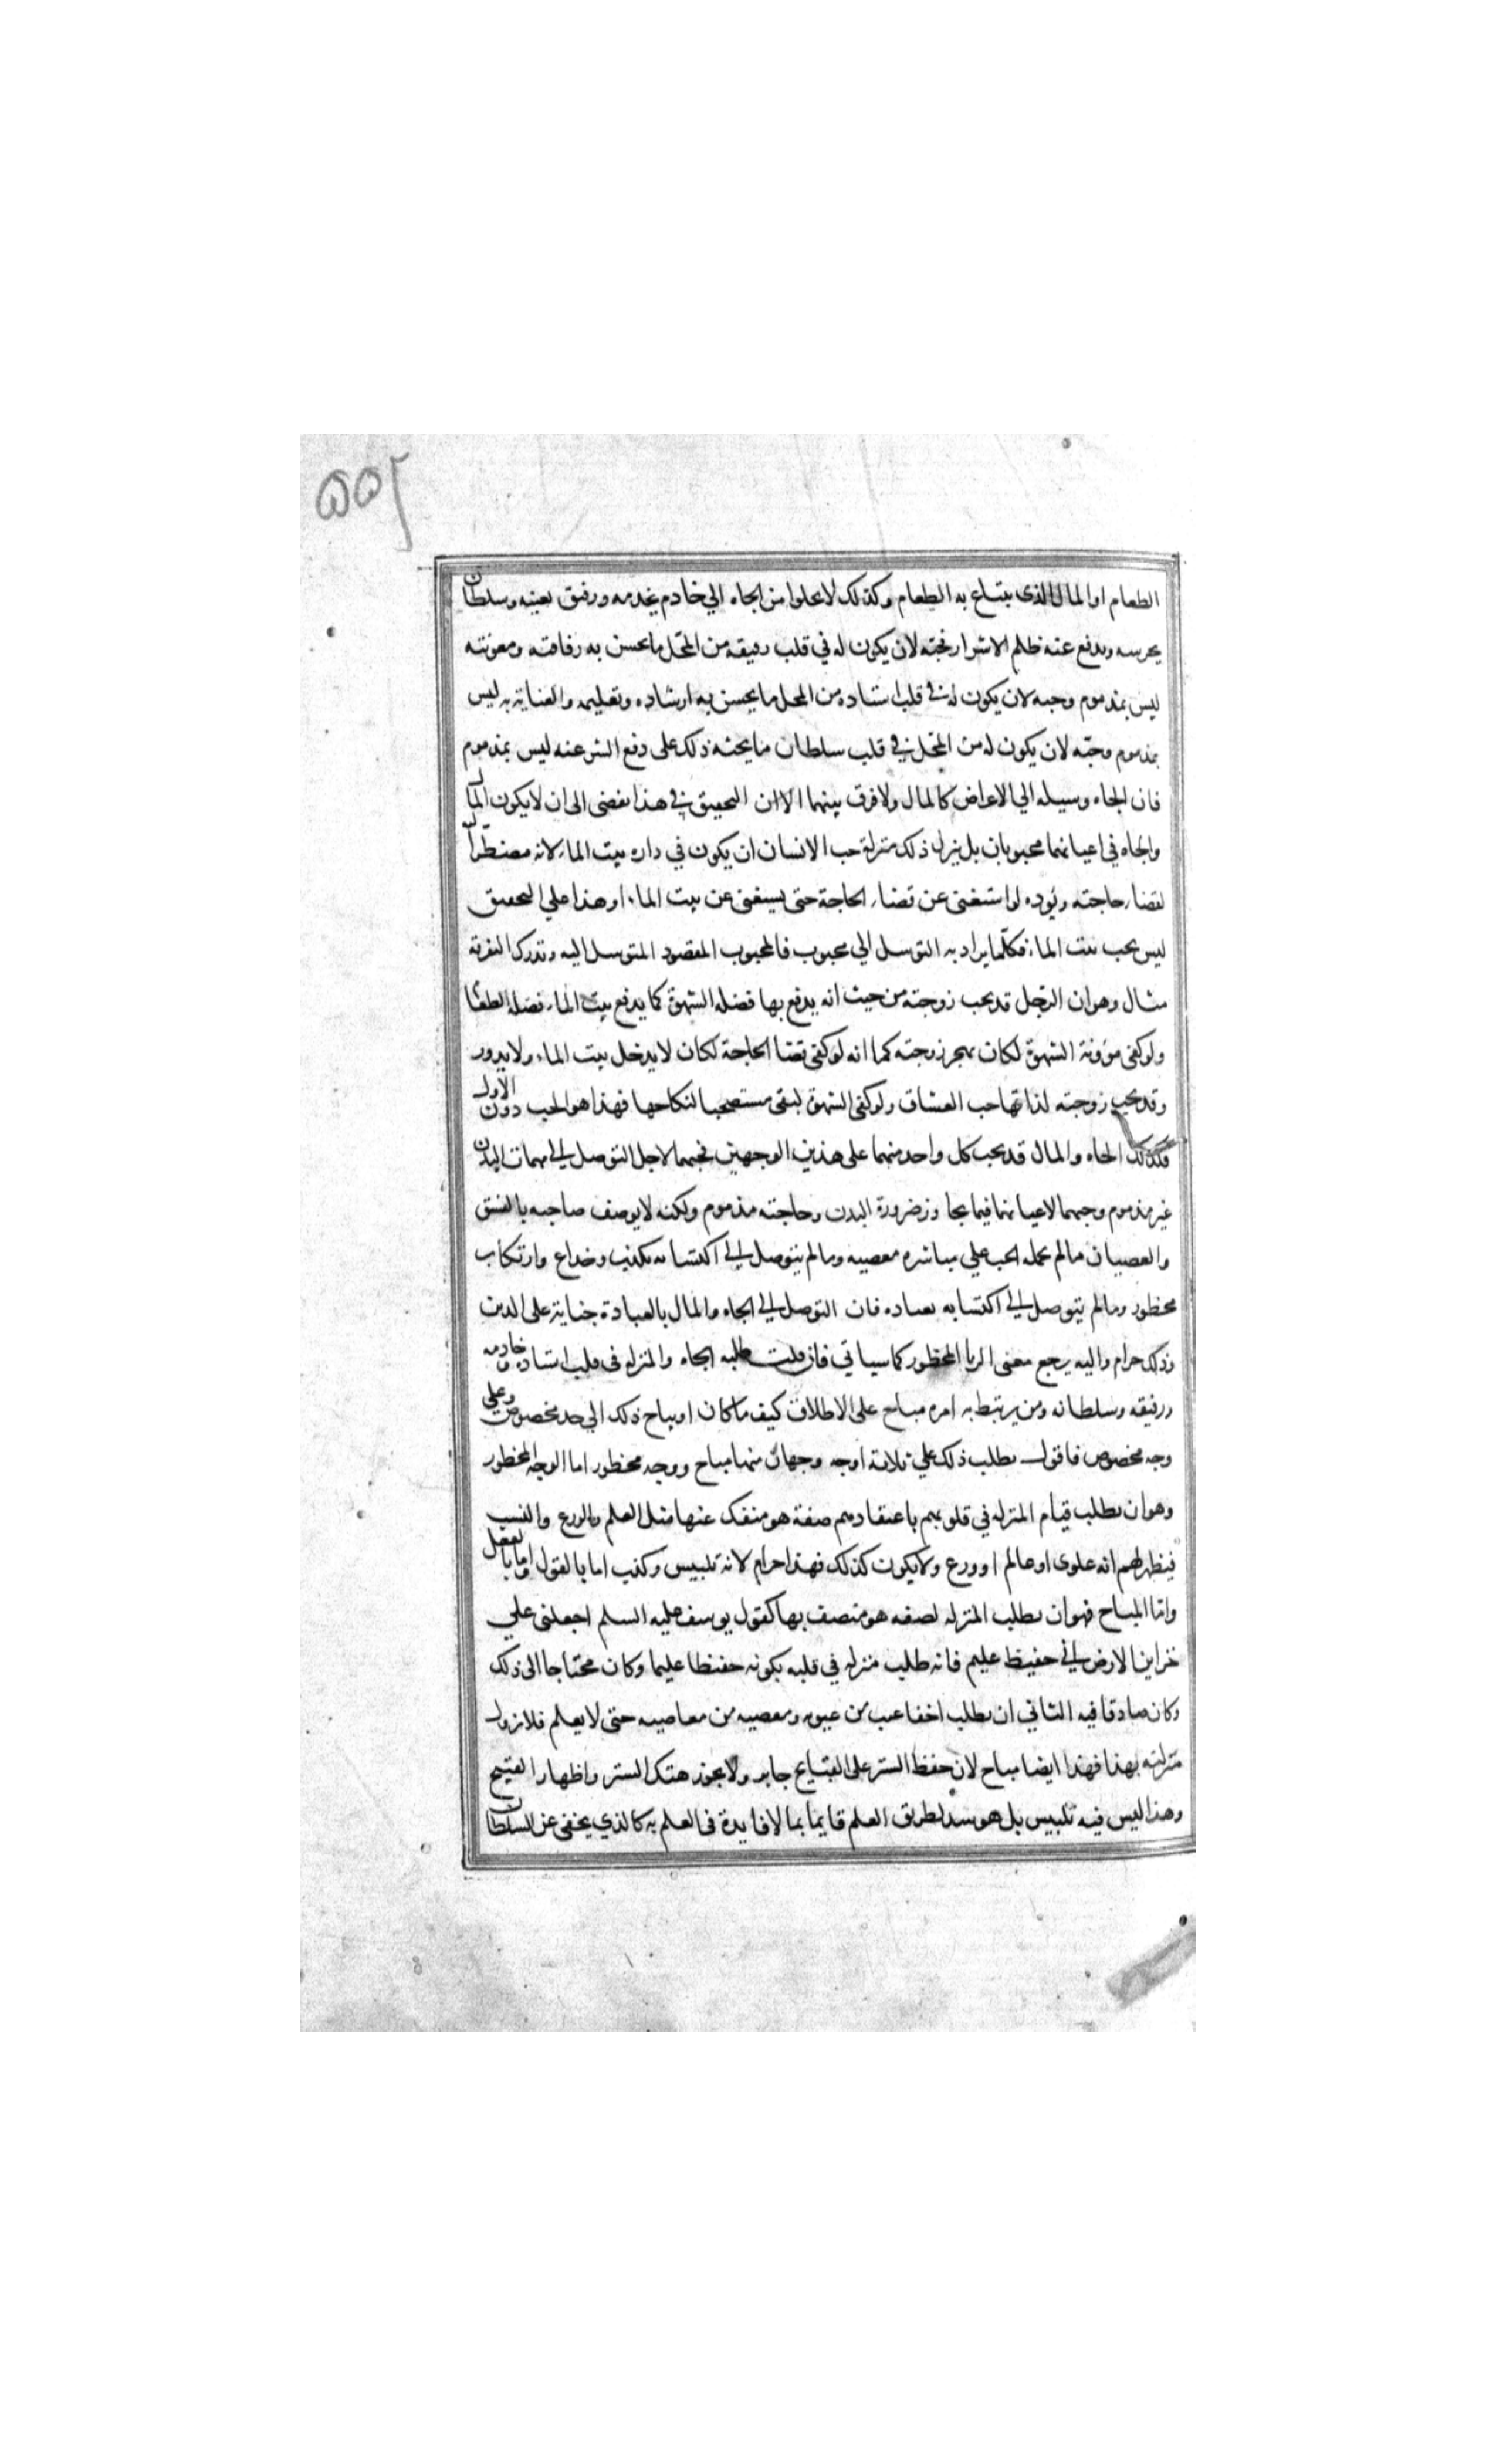 ٥٥٢
الطعام او المال الذى يبتاع به الطعام وكذلك لا يخلوا من الجاه الي خادم يخدمه ورفيق يعينه وسلطان
يحرسه ويدفع عنه ظلم الاشرار فحبّه لان يكون له في قلب رفيقه من المحل ما يحسن به رفاقته ومعونته
ليس بمذموم وحبه لان يكون له في قلب استاده من المحل ما يحسن به ارشاده وتعليمه والعناية به ليس
بمذموم وحبّه لان يكون له من المحل في قلب سلطان ما يحثه ذلك على دفع الشر عنه ليس بمذموم
فان الجاه وسيله الي الاعراض كالمال ولا فرق بينهما الا ان التحقيق في هذا يفضى الى ان لا يكون المال
والجاه في اعيانهما محبوبان بل ينزل ذلك منزلة حب الانسان ان يكون في داره بيت الماء لانه مضطرّ اليه
لقضاء حاجته ويوده لو استغنى عن قضاء الحاجة حتى يستغنى عن بيت الماء وهذا علي التحقيق
ليس بحب بيت الماء فكلّما يراد به التوسل الي محبوب فالمحبوب المقصود المتوسل اليه وتدرك التفرقة
مثال وهو ان الرجل قد يحب زوجته من حيث انه يدفع بها فضله الشهوة كما يدفع بيت الماء فضله الطعام
ولو كفى مؤونة الشهوة لكان يهجر زوجته كما انه لو كفى قضا الحاجة لكان لا يدخل بيت الماء ولا يدور
وقد يحب زوجته لذاتها حب العشاق ولو كفى الشهوة لبقى مستصحبا لنكاحها فهذا هو الحب دون الاول
فكذلك الجاه والمال قد يحب كل واحد منهما على هذين الوجهين فحبهما لاجل التوصل الى مهمات البدن
غير مذموم وحبهما لاعيانهما فيما يجاوز ضرورة البدن وحاجته مذموم ولكنه لا يوصف صاحبه بالفسق
والعصيان مالم يحمله الحب علي مباشره معصيه ومالم يتوصل الى اكتسابه بكذب وخداع وارتكاب
محظور ومالم يتوصل الى اكتسابه بعباده فان التوصل الى الجاه والمال بالعبادة جناية على الدين
وذلك حرام واليه يرجع معنى الريا المحظور كما سياتي فان قلت طلبه الجاه والمنزله فى قلب استاده وخادمه
ورفيقه وسلطانه ومن يرتبط به امره مباح على الاطلاق كيف ما كان او يباح ذلك الي حد مخصوص وعلي
وجه مخصوص فاقول يطلب ذلك علي ثلاثة اوجه وجهان منها مباح ووجه محظور اما الوجه المحظور
وهو ان يطلب قيام المنزله في قلوبهم باعتقادهم صفة هو منفك عنها مثل العلم والورع والنسب
فيظهر لهم انه علوى او عالم او ورع ولا يكون كذلك فهذا حرام لانه تلبيس وكذب اما بالقول واما بالفعل
واما المباح فهو ان يطلب المنزله لصفه هو متصف بها كقول يوسف عليه السلم اجعلنى علي
خزاين الارض انى حفيظ عليم فانه طلب منزله في قلبه بكونه حفيظا عليما وكان محتاجا الى ذلك
وكان صادقا فيه الثاني ان يطلب اخفا عيب من عيوبه ومعصيه من معاصيه حتى لا يعلم فلا تزول
منزلته بهذا فهذا ايضا مباح لان حفظ الستر على القبايح جايز ولا يجوز هتك الستر واظهار القبيح
وهذا ليس فيه تلبيس بل هو سد لطريق العلم قايما بما لا فايدة فى العلم به كالذي يخفى عن السلطان